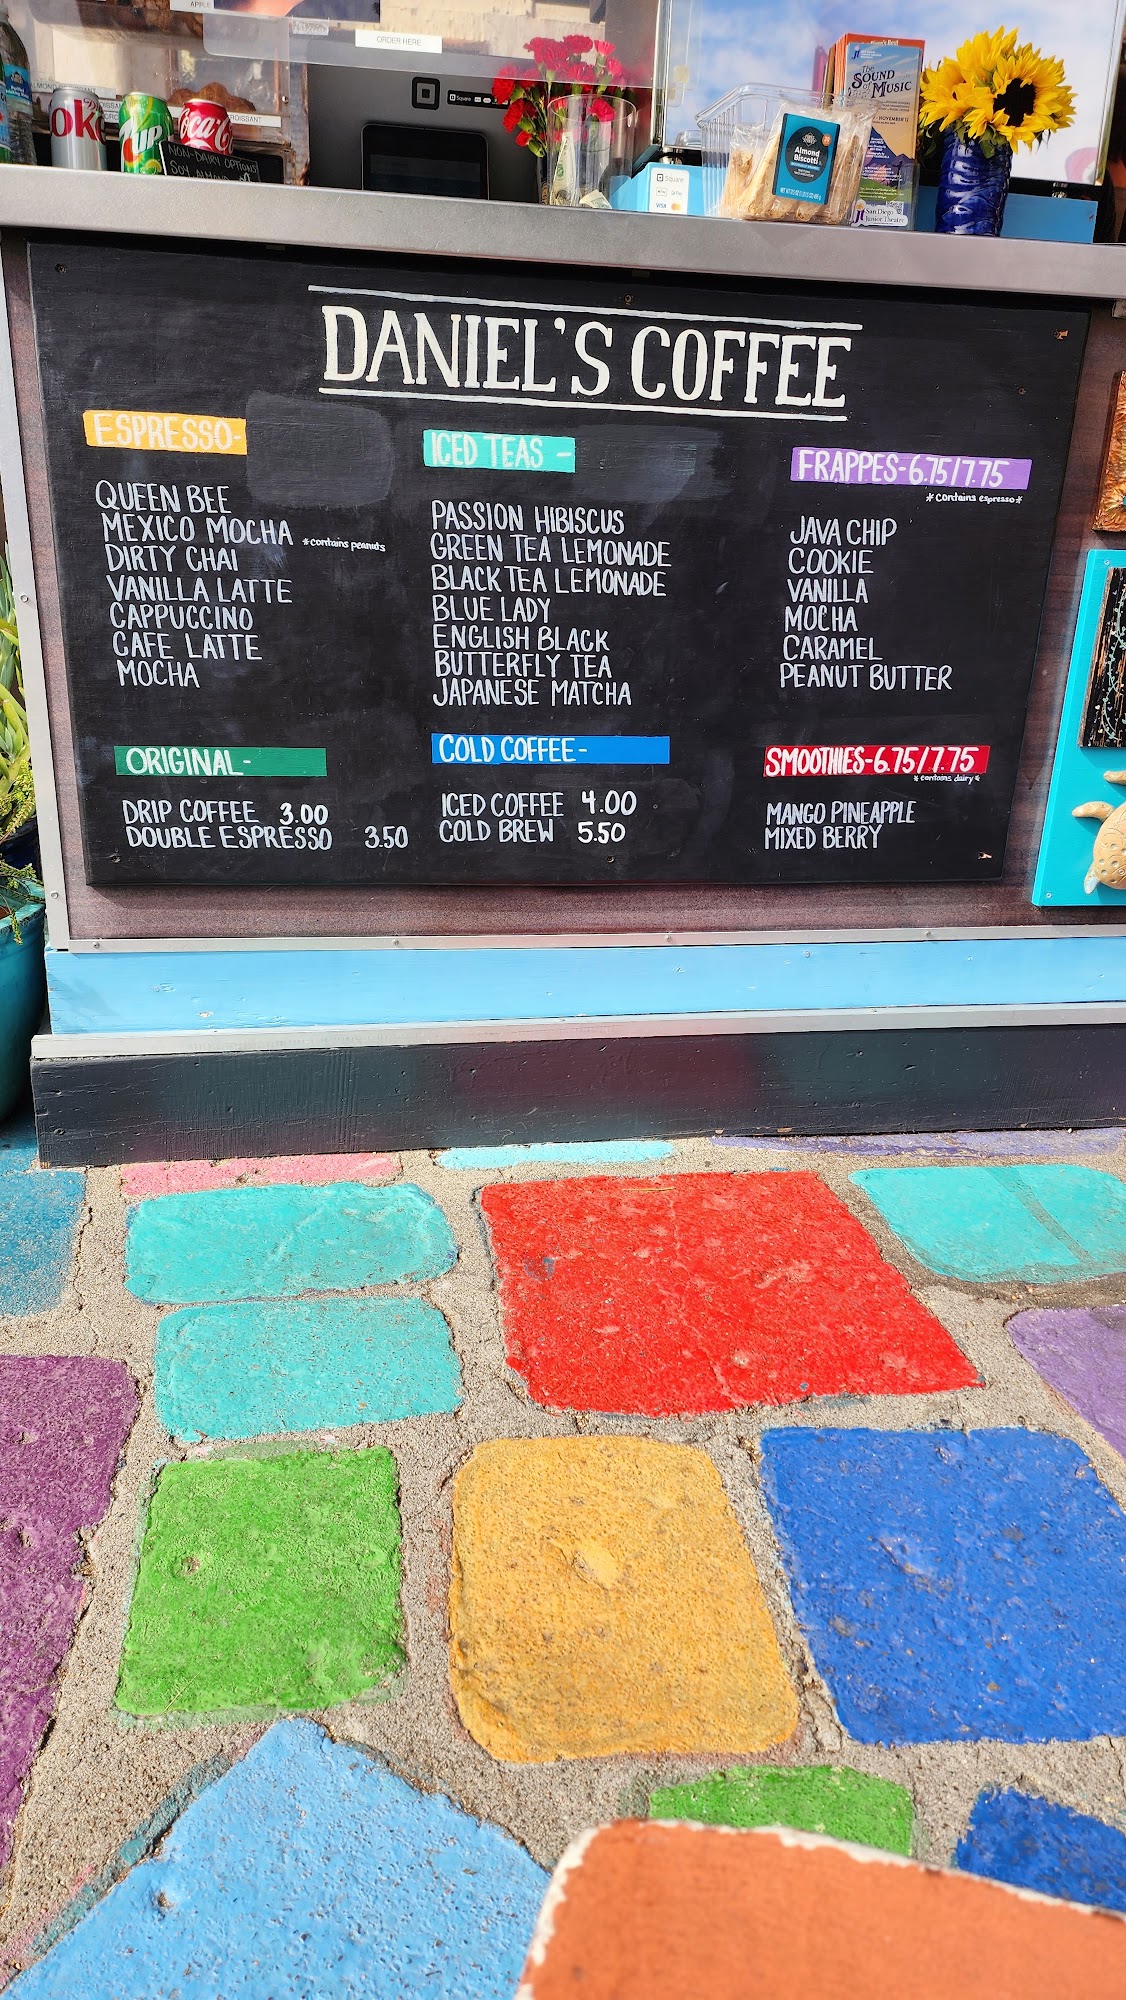 APPLE
ORDER HERE
Square
oke
7up
Coca-Co
ROISSANT
NON-DAIRY OPTIONS
SOY ALMOND
Square
Pay
VISA
Almond
Biscotti
The
SOUND
of
MUSIC
San Diego
Junior Theatre
DANIEL'S COFFEE
ESPRESSO-
QUEEN BEE
MEXICO MOCHA *contains peanuts
DIRTY CHAI
VANILLA LATTE
CAPPUCCINO
CAFE LATTE
MOCHA
ORIGINAL-
DRIP COFFEE 3.00
DOUBLE ESPRESSO 3.50
ICED TEAS -
PASSION HIBISCUS
GREEN TEA LEMONADE
BLACK TEA LEMONADE
BLUE LADY
ENGLISH BLACK
BUTTERFLY TEA
JAPANESE MATCHA
COLD COFFEE-
ICED COFFEE 4.00
COLD BREW 5.50
FRAPPES-6.75/7.75
*contains espresso*
JAVA CHIP
COOKIE
VANILLA
MOCHA
CARAMEL
PEANUT BUTTER
SMOOTHIES-6.75/7.75
*contains dairy*
MANGO PINEAPPLE
MIXED BERRY